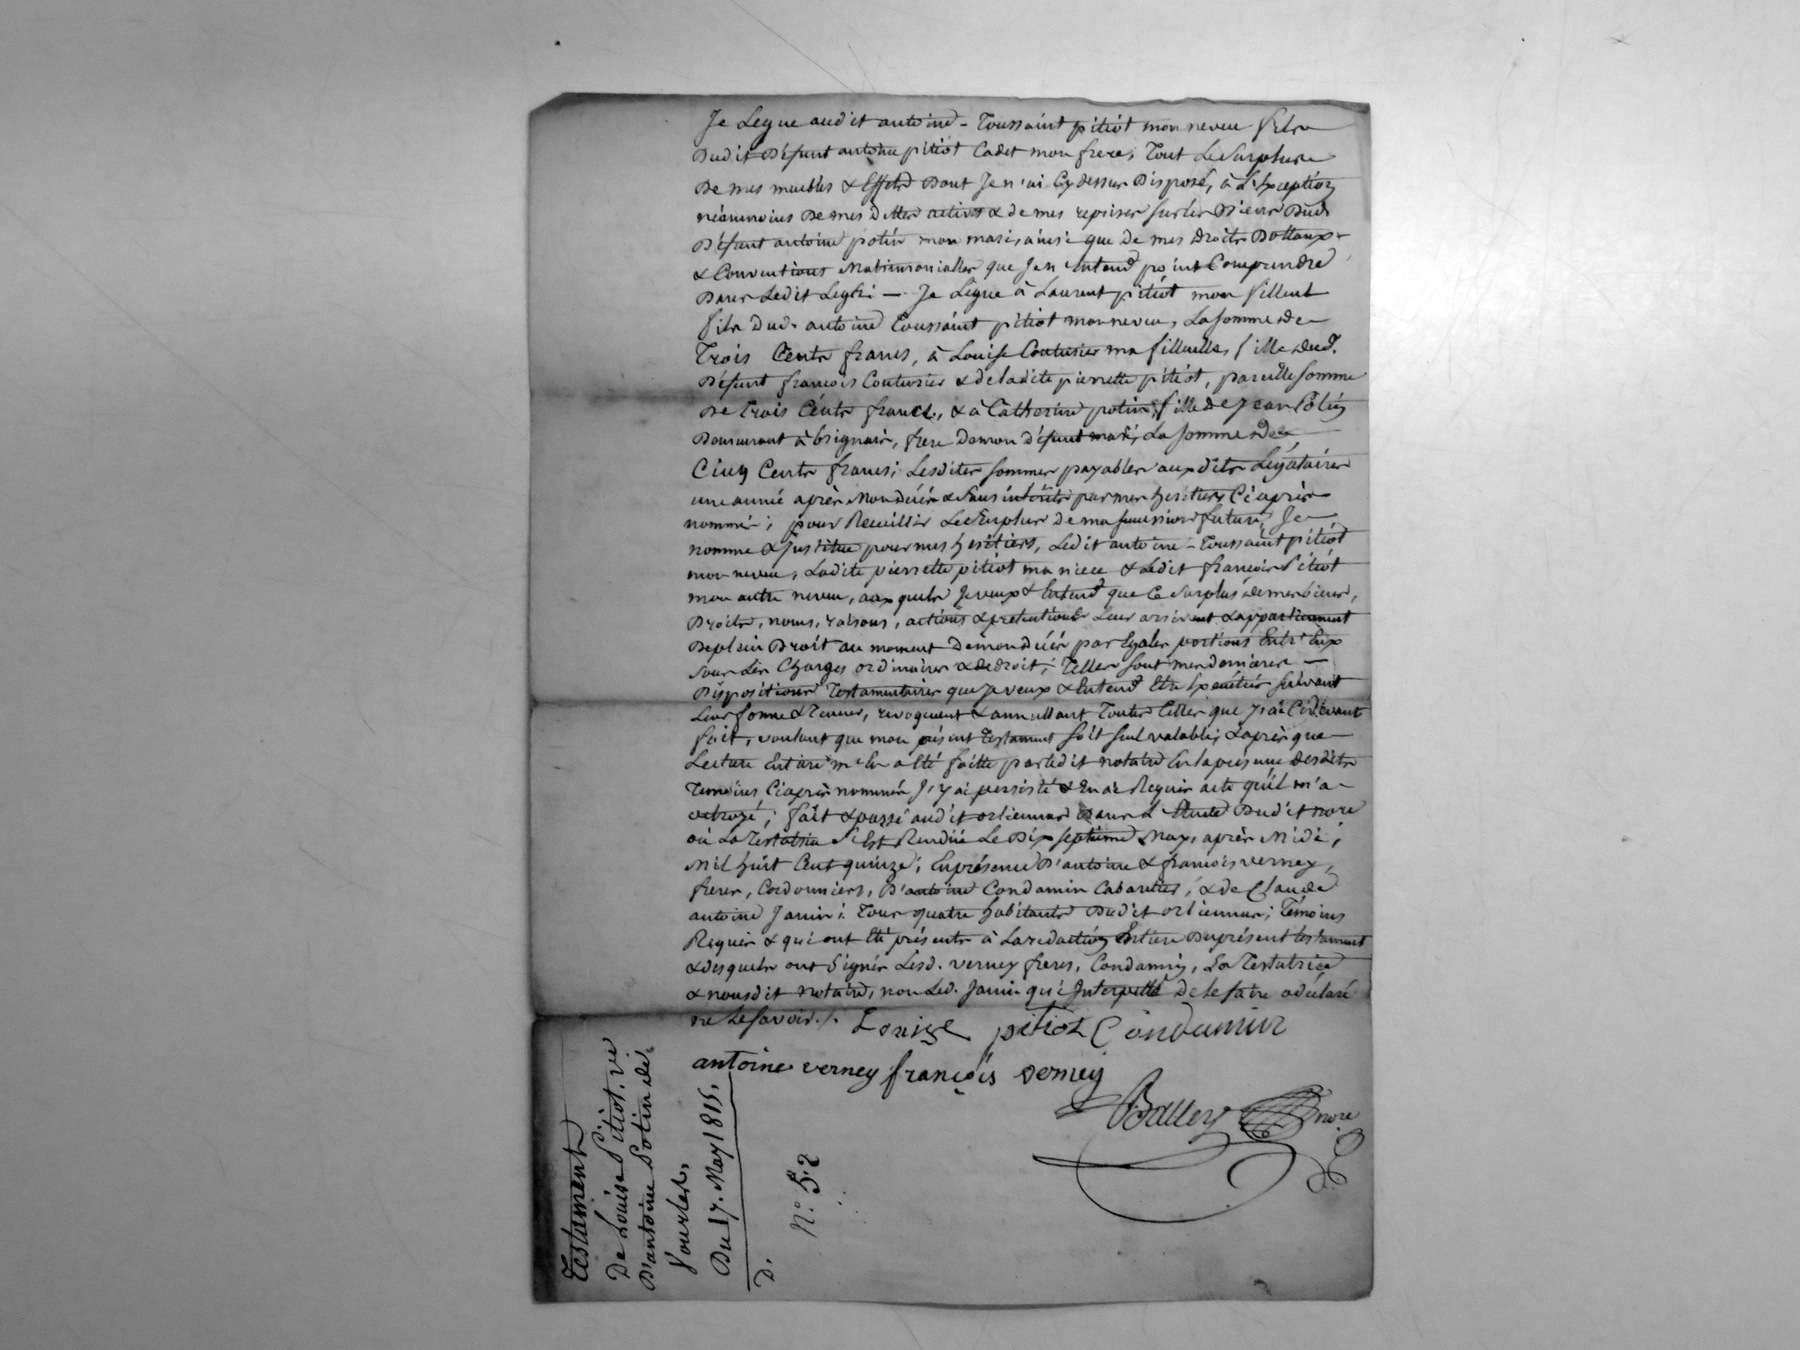 Je Legue audit antoine - Toussaint pitiot mon neveu fils
Dudit Défunt antoine pitiot Cadet mon frere; Tout Le Surplus
De mes meubles & Effets Dont Je n'ai Cydessus Disposé, à L'Exception
néanmoins De mes dettes actives & de mes reprises sur les Biens Dud.
Défunt antoine potin mon mari, ainsi que De mes droits Dottaux
& Conventions Matrimonialles que Je n'entend point Comprendre
Dans Ledit Legs; — Je Légue à Laurent pitiot mon filleul
fils Dud. antoine Toussaint pitiot mon neveu, La somme de
Trois Cents francs, à Louise Couturier ma filleulle, fille dud.
Défunt françois Couturier & de ladite pierrette pitiot, pareille somme
De Trois Cents francs, & à Catherine potin, fille de Jean Potin
Demeurant à brignais, frere Demon défunt mari, La somme de
Cinq Cents francs; Lesdites sommes payables auxdits Légataires
une année après Mon décès & Sans intérêts par mes heritiers Ci après
nommés; pour Recueillir Le Surplus de ma succession future, Je
nomme & Institue pour mes heritiers, Ledit antoine - Toussaint pitiot
mon neveu, Ladite pierrette pitiot ma niece & Ledit françois Pitiot
mon autre neveu, auxquels Je veux & Entend que Ce Surplus de mes biens,
Droits, noms, raisons, actions & pretentions Leur arrivent & appartiennent
De plein Droit au moment De mon décès par Egales portions Entr'Eux
sous Les Charges ordinaires & de droit; Telles sont mes dernieres —
Dispositions Testamentaires que Je veux & Entend Etre Exécutées suivant
Leur forme & Teneur, revoquant & annullant Toutes Celles que J'ai Cidevant
fait, voulant que mon présent Testament soit seul valable; & après que
Lecture Entiere m'En a Eté faitte par Ledit notaire En la présence Desdits
Temoins Ciaprès nommés J'y ai persisté & En ai Requis acte qu'il m'a
octroyé; fait & passé audit orlienas Dans L'Etude Dudit nore
où La Testatrice s'Est Rendüe Le Dix septieme May, après Midi;
Mil huit Cent quinze; En présence D'antoine & françois verney,
freres, Cordonniers, D'antoine Condamin Cabaretier, & de Claude
antoine Janin; Tous quatre habitants Dudit orlienas; Témoins
Requis & qui ont Eté présents à La redaction Entiere Du présent testament
& desquels ont Signés Lesd. verney freres, Condamin, La Testatrice
& nousdit notaire, non Led. Janin qui Interpellé de le faire a déclaré
ne Le savoir ./.
Louise pitiot Condamin
antoine verney françois verney
nore
Testament
De Louise Pitiot, ve
D'antoine Potin de
Vourles,
Du 17. May 1815.
D.
N.º 52